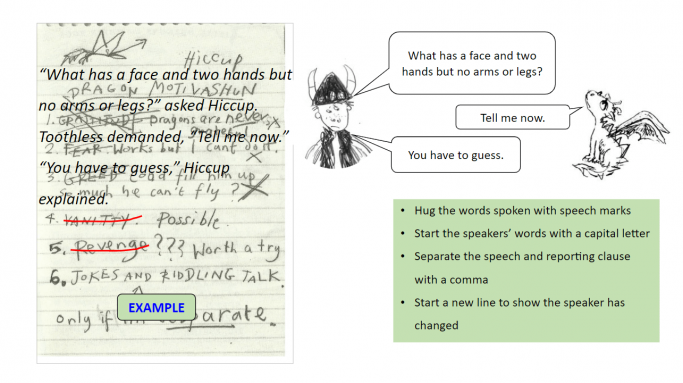 Hiccup
“What has a face and two hands but
DRAGON MOTIVASHUN
no arms or legs?” asked Hiccup.
1. GRATITUDE Dragons are never
Toothless demanded, “Tell me now.”
2. FEAR Works but I cant do it.
“You have to guess,” Hiccup
3. GREED fill him up
so much he can't fly?
explained.
4. VANITTY. Possible.
5. Revenge??? Worth a try
6. JOKES AND RIDDLING TALK.
EXAMPLE
only if
What has a face and two
hands but no arms or legs?
Tell me now.
You have to guess.
• Hug the words spoken with speech marks
• Start the speakers’ words with a capital letter
• Separate the speech and reporting clause
with a comma
• Start a new line to show the speaker has
changed